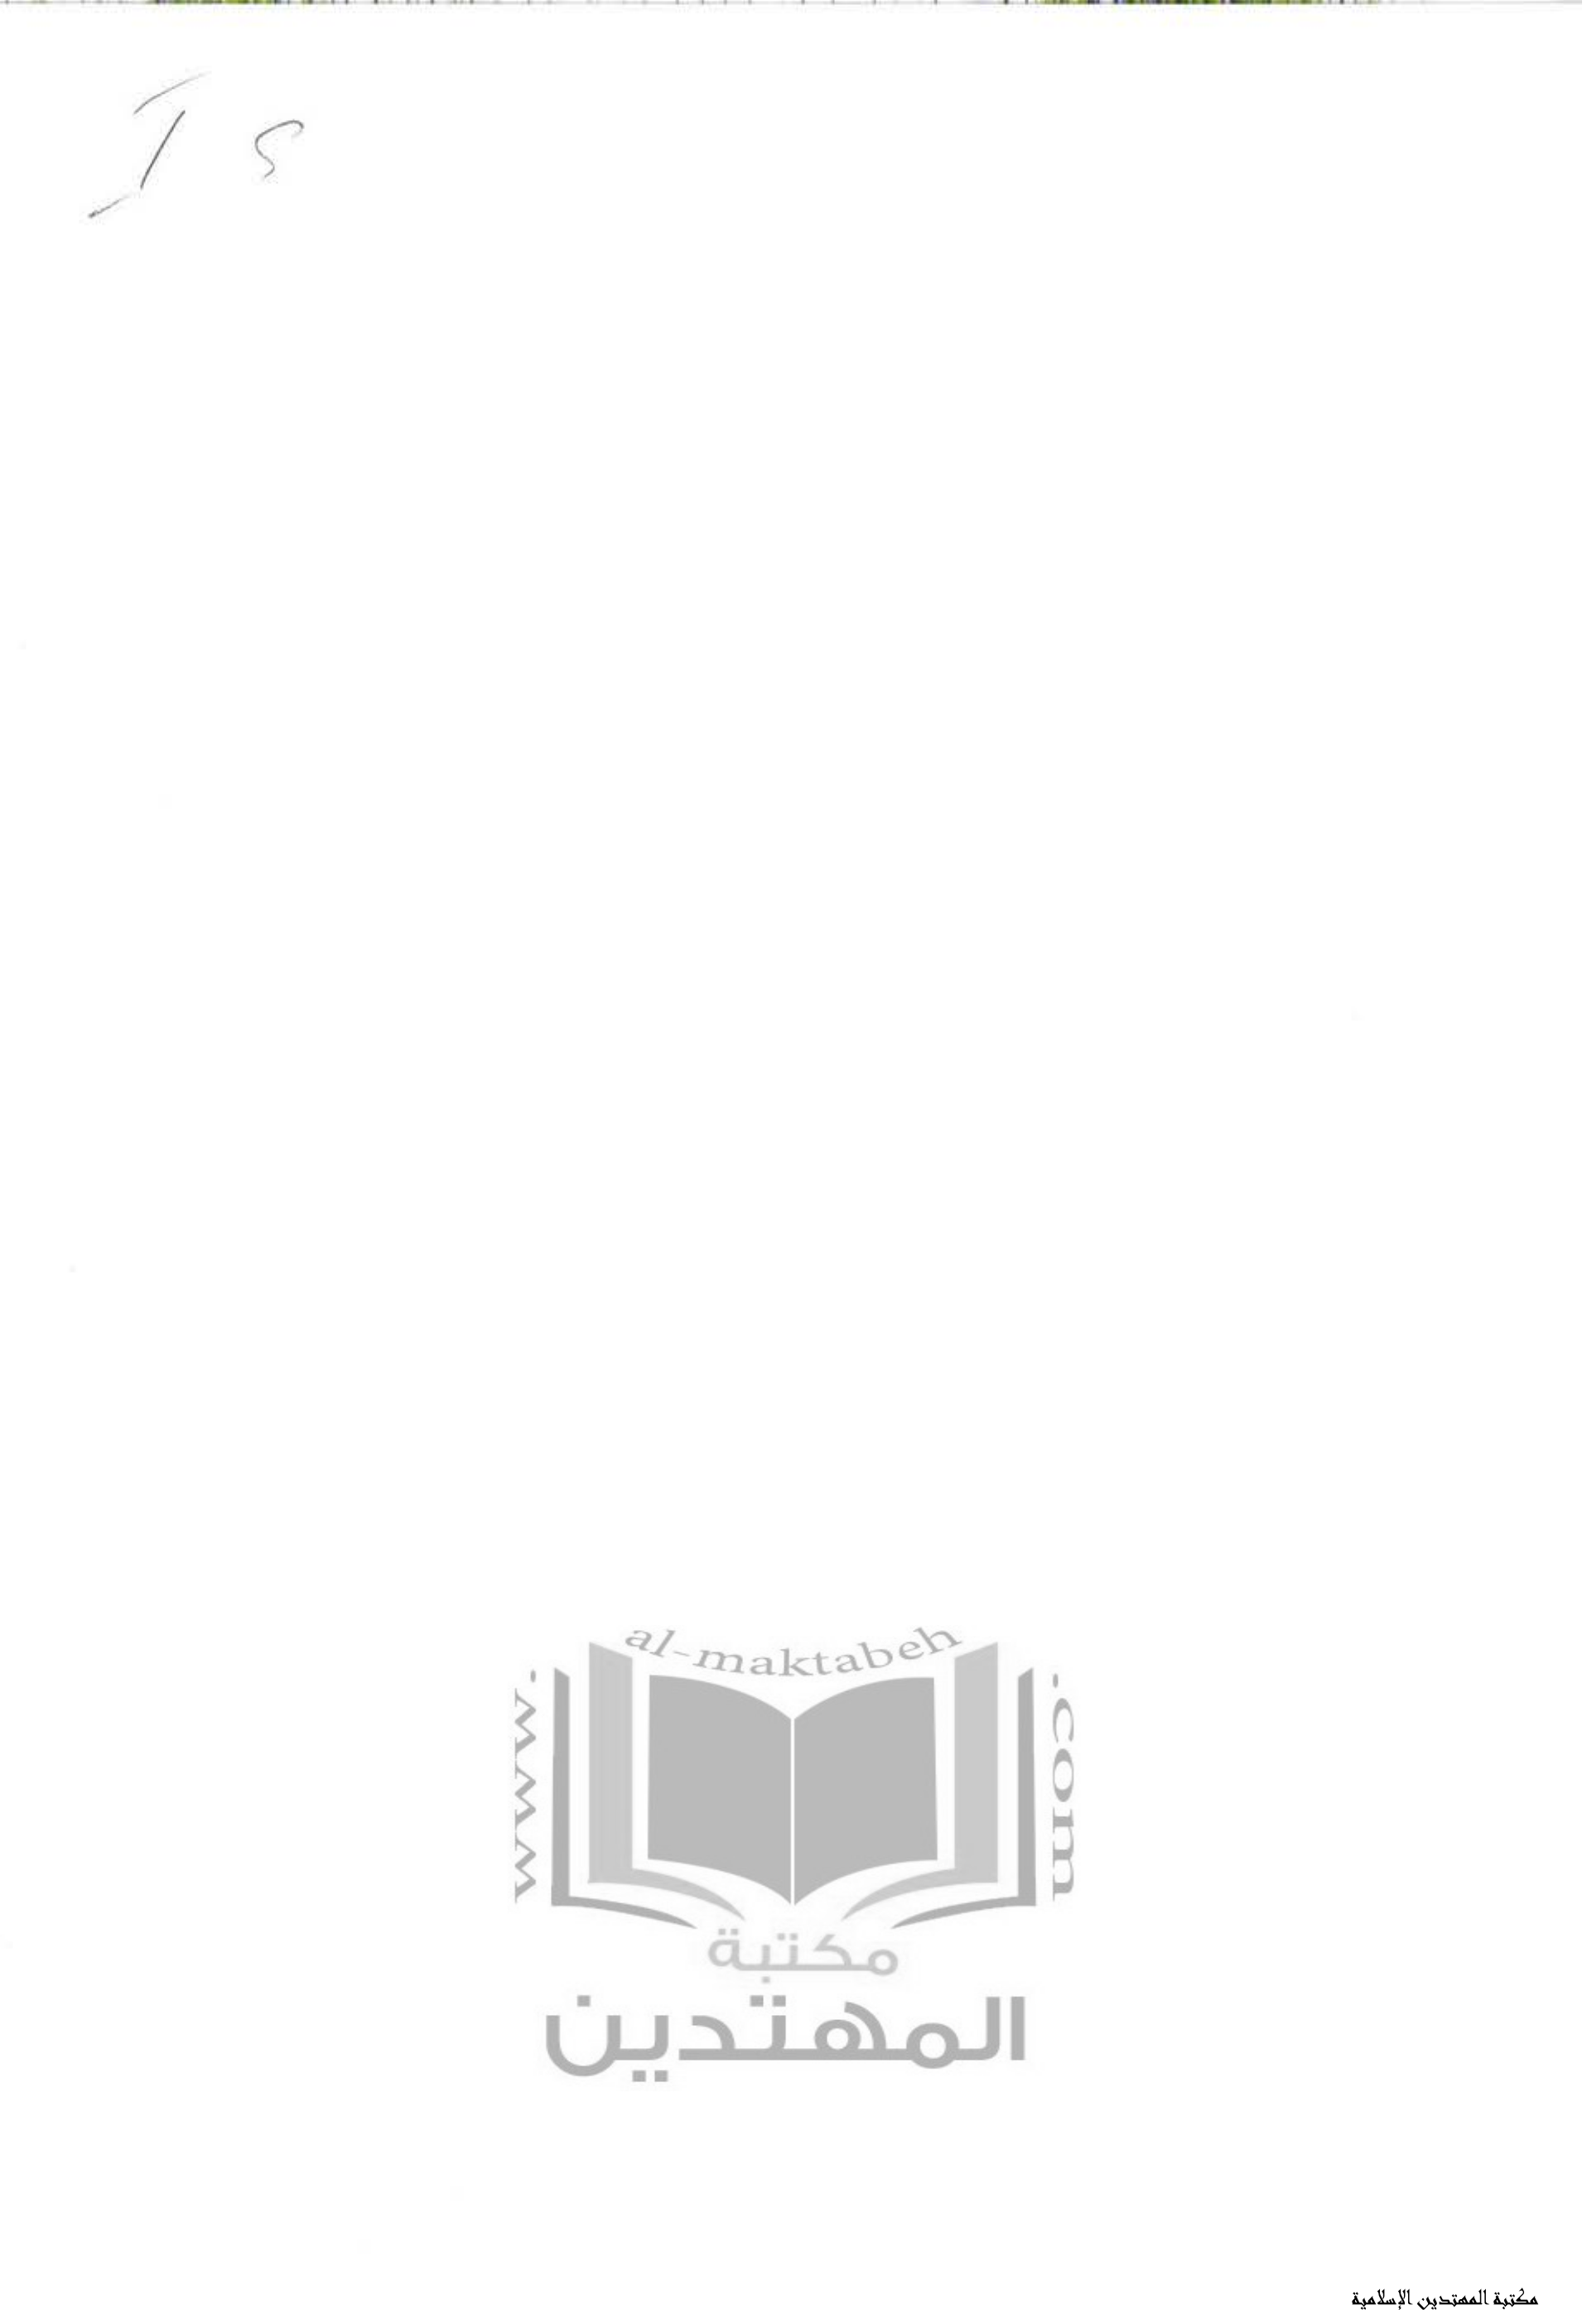 I s
www.al-maktabeh.com
مكتبة
المهتدين
مكتبة المهتدين الإسلامية